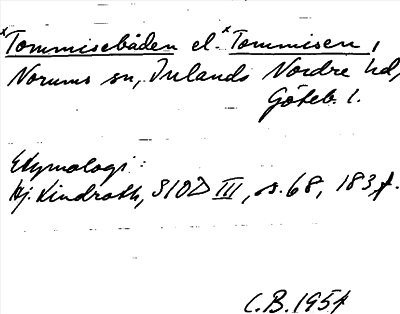 *Tommisebåden el. *Tommisen,
Norums sn, Inlands Nordre hd,
Göteb. l.
Etymologi:
Hj. Lindroth, SIOD III, s. 68, 183 f.
C.B. 1954